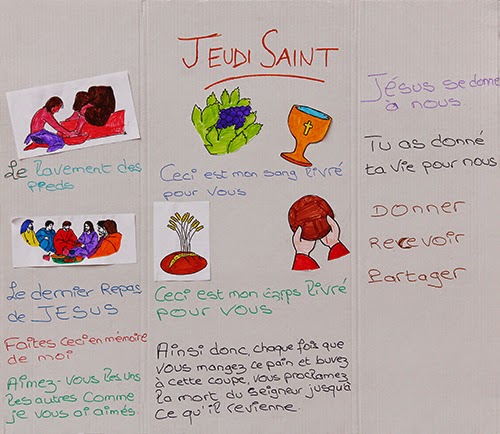 JEUDI SAINT
Le lavement des
pieds
Le dernier Repas
de JESUS
Faites Ceci en mémoire
de moi
Aimez-vous les uns
les autres Comme
je vous ai aimés.
Ceci est mon sang livré
pour vous
Ceci est mon Corps livré
pour vous
Ainsi donc, chaque fois que
vous mangez ce pain et buvez
à cette coupe, vous proclamez
la mort du Seigneur jusqu'à
Ce qu'il revienne.
Jésus se donne
à nous
Tu as donné
ta vie pour nous
Donner
Recevoir
Partager